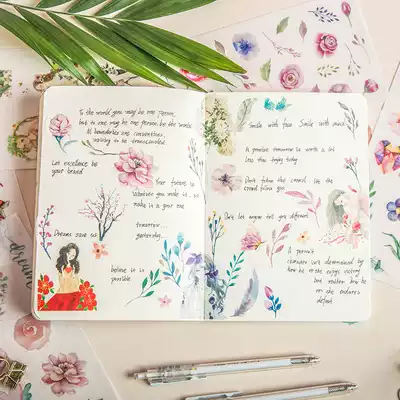 To the world you may be one person,
but to one person you may be the world.
All boundaries are conventions,
waiting to be transcended.
Let excellence be
your brand
Your future is
whatever you make it, so
make it a good one
Dreams
tomorrow
yesterday
believe it is
possible
Smile with face Smile with mind
A positive tomorrow is worth a lot
less than today
Don't follow the crowd let the
crowd follow you
Don't let anyone tell you different
A person's
character isn't determined by
how he or she enjoys victory
but rather how he
or she endures
defeat
dream